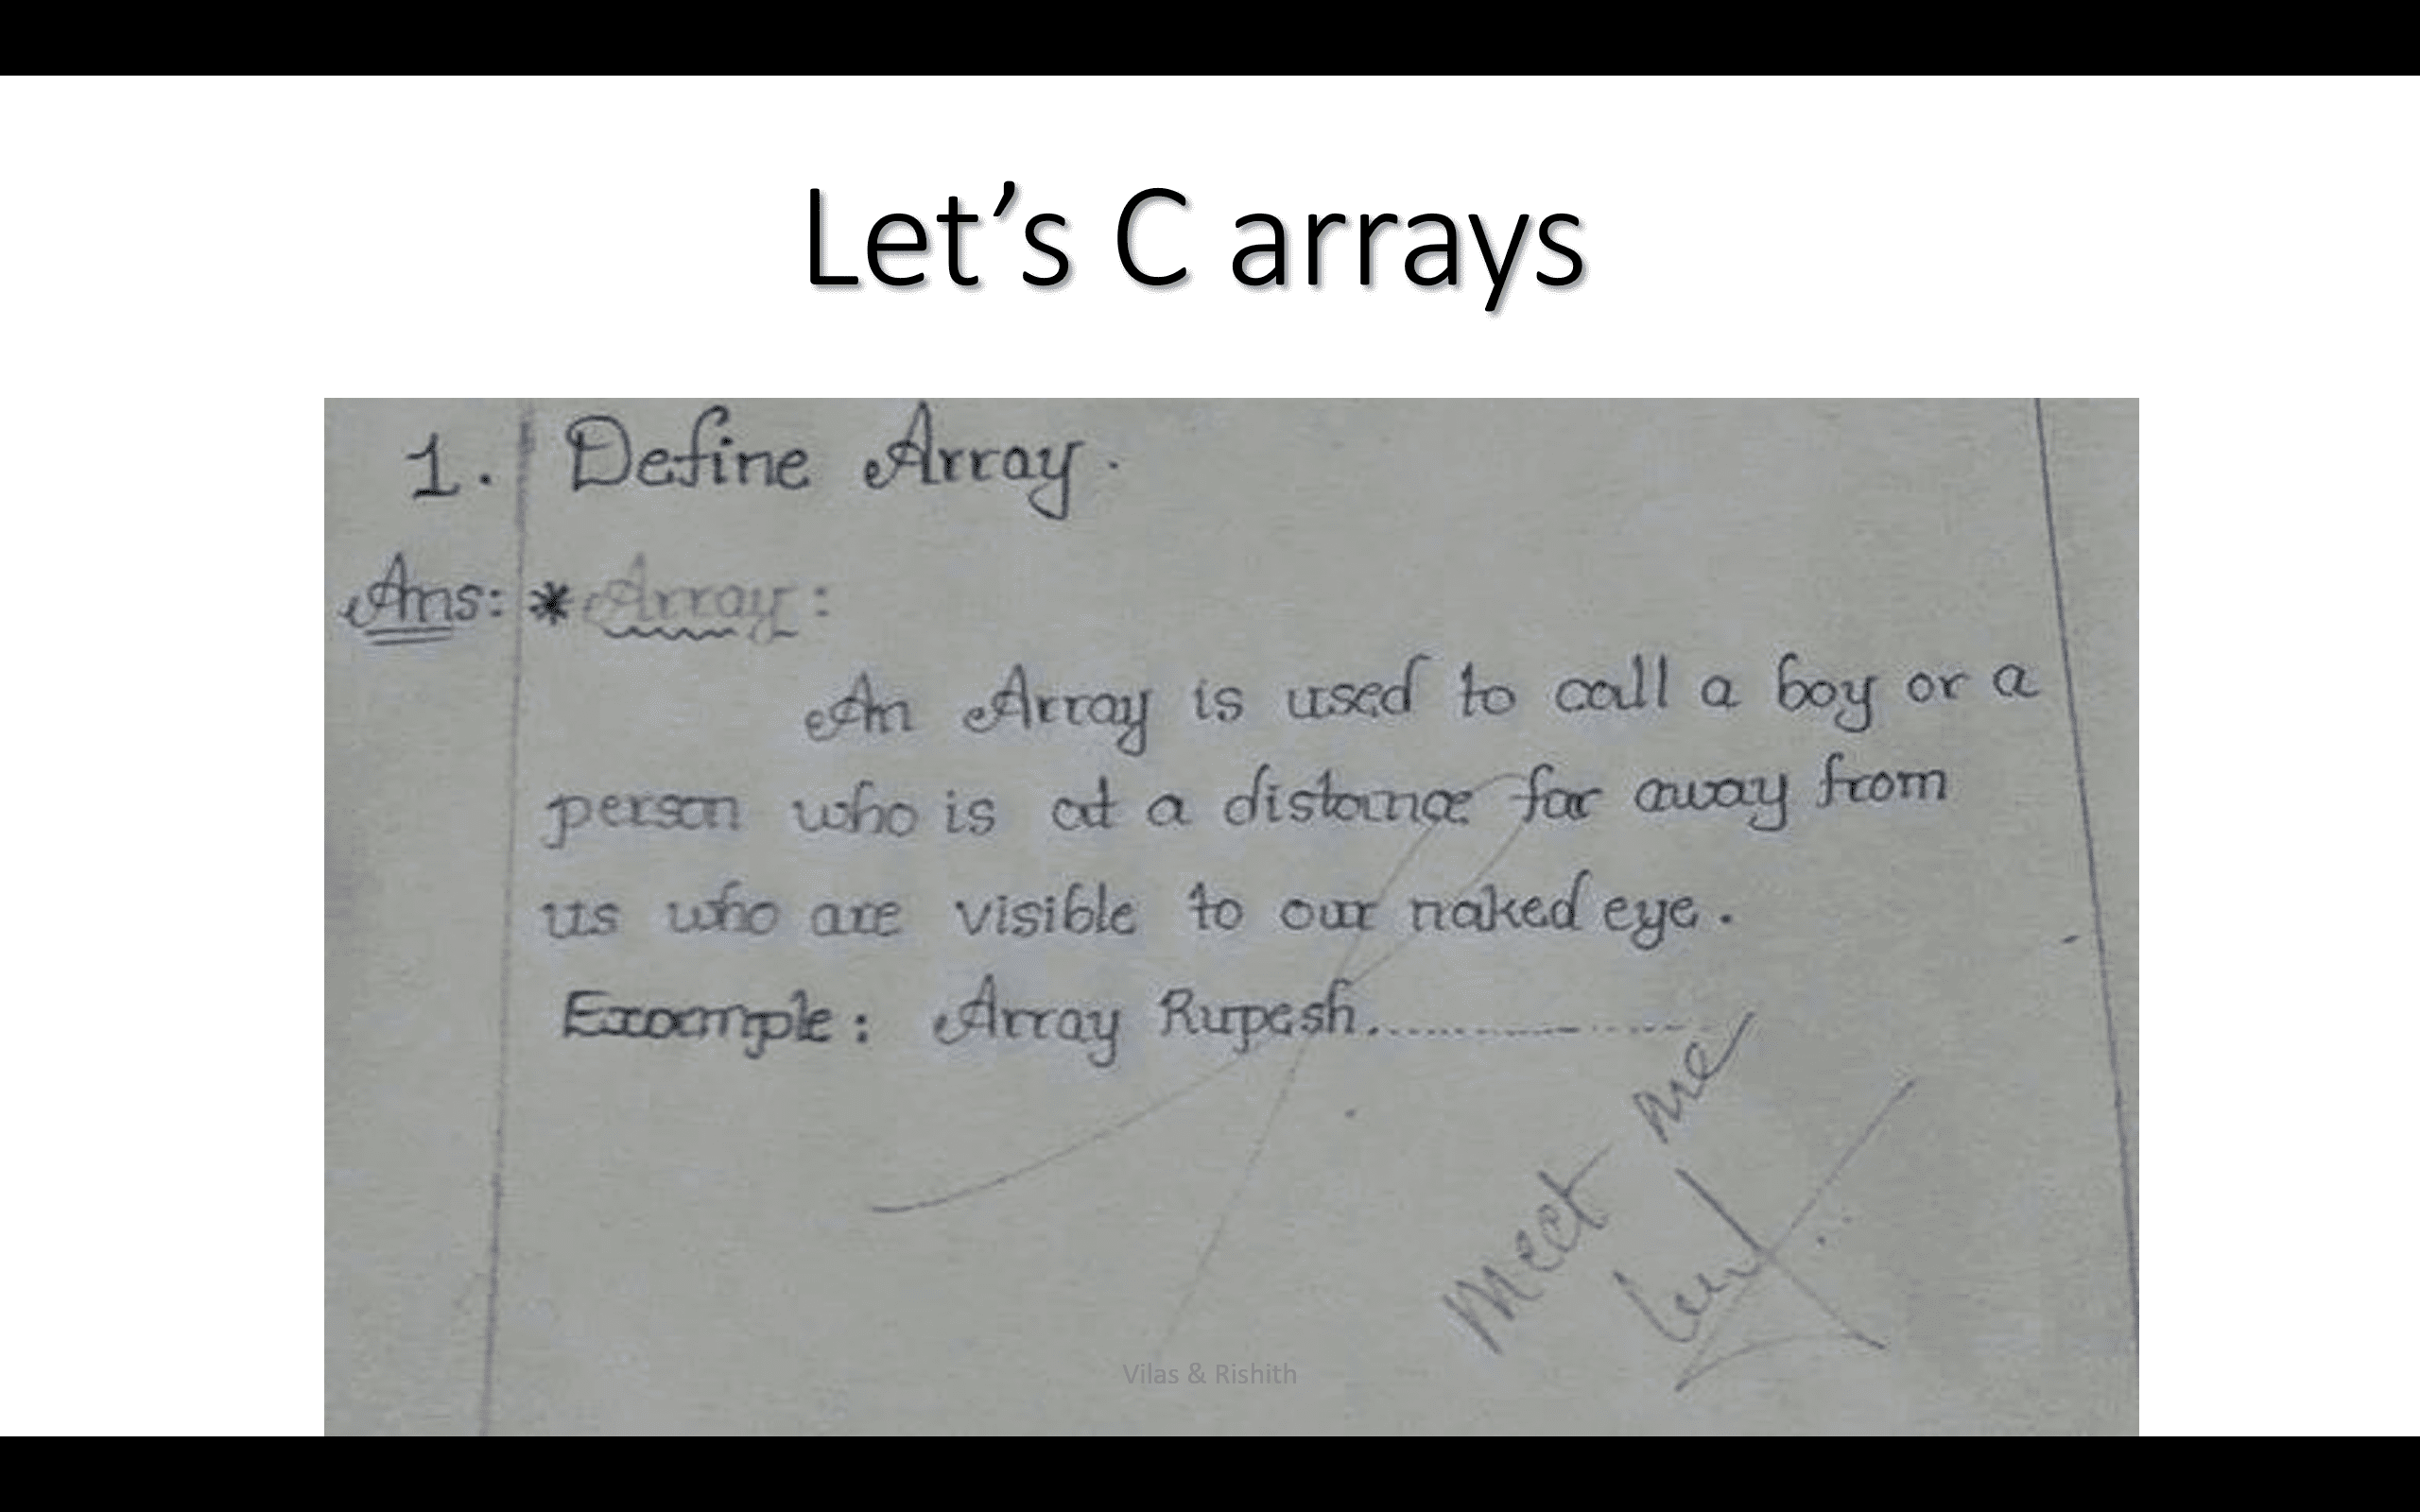 Let’s C arrays
1. Define Array.
Ans: * Array:
An Array is used to call a boy or a
person who is at a distance far away from
us who are visible to our naked eye.
Example: Array Rupesh...........................
Meet me
Vilas & Rishith